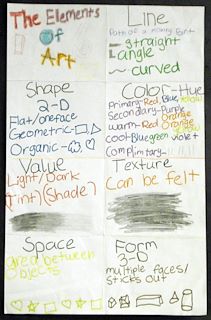 The Elements
of
Art
Line
Path of a moving point
straight
angle
curved
Shape
2-D
Flat/oneface
Geometric-
Organic-
Color-Hue
Primary-Red, Blue, Yellow
Secondary-Purple
Orange
warm-Red Orange
cool-Blue green violet
Complimitary-
Value
Light/Dark
(Tint) (Shade)
Texture
Can be felt
Space
area between
objects
Form
3-D
multiple faces/
sticks out